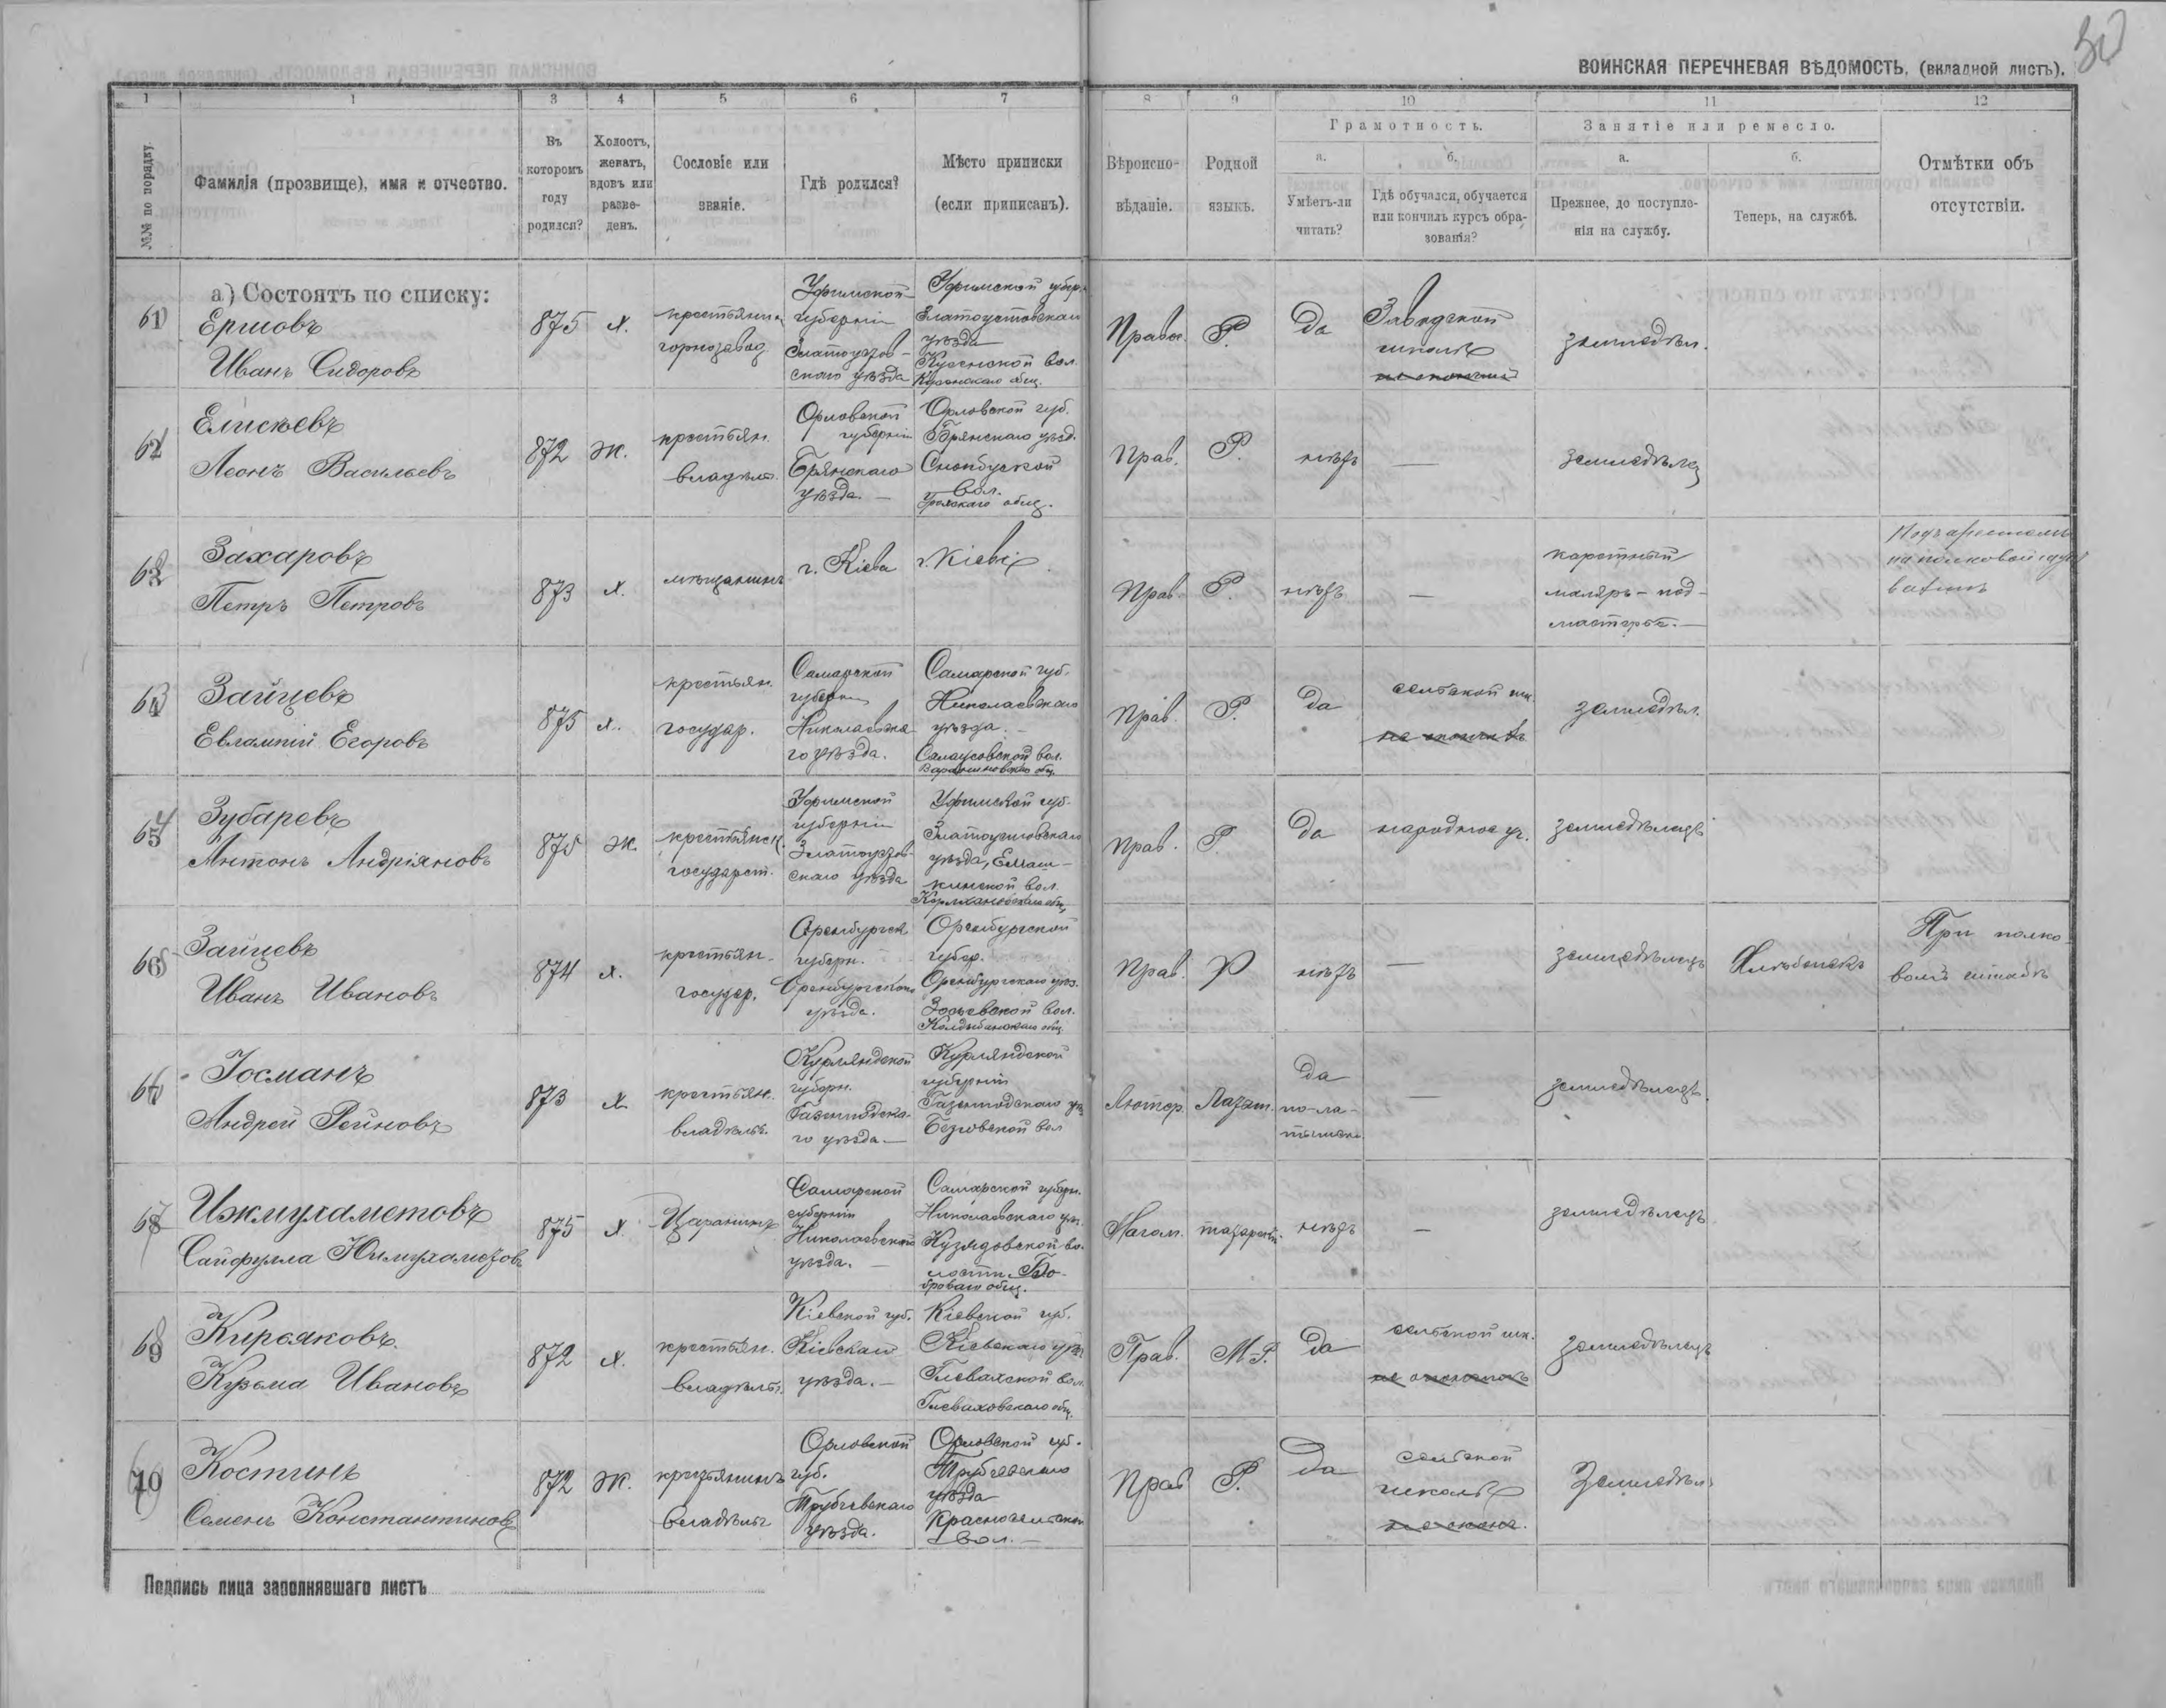 ВОИНСКАЯ ПЕРЕЧНЕВАЯ ВѢДОМОСТЬ, (вкладной листъ).
1 1 3 4 5 6 7 8 9 10 11 12
№№ по порядку.
Фамилія (прозвище), имя и отчество.
Въ которомъ году родился?
Холостъ, женатъ, вдовъ или разведенъ.
Сословіе или званіе.
Гдѣ родился?
Мѣсто приписки (если приписанъ).
Вѣроисповѣданіе.
Родной языкъ.
Грамотность.
а.
Умѣетъ-ли читать?
б.
Гдѣ обучался, обучается или кончилъ курсъ образованія?
Занятіе или ремесло.
а.
Прежнее, до поступленія на службу.
б.
Теперь, на службѣ.
Отмѣтки объ отсутствіи.
а) Состоятъ по списку:
Ершовъ
Иванъ Сидоровъ
875
х.
горнозавод
Уфимской
губерніи
Златоустов-
скаго уѣзда
Уфимской губер.
Златоустовскаго
уѣзда
Кусинской вол.
Кусинскаго общ.
Правос.
Р.
да
Заводской
школѣ
земледѣл.
Елисѣевъ
Леонъ Васильевъ
872
ж.
крестьян.
владѣльч.
Орловской
губерніи
Брянскаго
уѣзда.
Орловской губ.
Брянскаго уѣзд.
вол.
общ.
Прав.
Р.
нѣтъ
—
земледѣлец
Захаровъ
Петръ Петровъ
873
х.
мѣщанинъ
г. Кіева
г. Кіевѣ
Прав.
Р.
нѣтъ
—
каретный
маляръ - под-
мастерье. —
Подъ арестомъ
на полковой
Зайцевъ
Евлампій Егоровъ
875
х.
крестьян.
государ.
Самарской
губерн
Николаевска-
го уѣзда.
Самарской губ.
Николаевскаго
уѣзда. —
вол.
Прав.
Р.
да
сельской шк.
не окончилъ
земледѣл.
Зубаревъ
Антонъ Андріяновъ
875
ж.
крестьянск.
государст.
Уфимской
губерніи
Златоустов-
скаго уѣзда
Уфимской губ.
Златоустовскаго
уѣзда, Емаш-
кинской вол.
Прав.
Р.
да
народное уч.
земледѣлецъ
66
Зайцевъ
Иванъ Ивановъ
874
х.
крестьян.
государ.
Оренбургск.
губерн.
Оренбургскаго
уѣзда.
Оренбургской
губер.
Оренбургскаго уѣз.
вол.
Прав.
Р
нѣтъ
—
земледѣлецъ
Хлѣбопекъ
При полко-
вомъ штабѣ
Госманъ
Андрей Рейновъ
873
х
крестьян.
владѣльч.
Курляндской
губерн.
Газенпотска-
го уѣзда. —
Курляндской
губерніи
Газенпотскаго уѣз
вол
Лютер.
Латыш.
да
по-ла-
тышски.
—
земледѣлецъ.
Ижмухаметовъ
Сайфулла
875
х
Самарской
губерніи
Николаевскаго
уѣзда. —
Самарской губерн.
Николаевскаго уѣз.
Магом.
татарскій.
нѣтъ
—
земледѣлецъ
69
Кирсяковъ
Кузьма Ивановъ
872
х.
крестьян.
владѣльч.
Кіевской губ.
Кіевскаго
уѣзда. —
Кіевской губ.
Кіевскаго уѣз.
Глевахской вол.
Глеваховскаго общ.
Прав.
М-Р.
да
сельской шк.
не окончилъ
земледѣлецъ
70
Костинъ
Семенъ Константиновъ
872
ж.
крестьянинъ
владѣльч.
Орловской
губ.
Трубчевскаго
уѣзда.
Орловской губ.
Трубчевскаго
уѣзда
Красносельской
вол. —
Прав
Р.
да
сельской
школѣ
не оконч.
Земледѣл.
Подпись лица заполнявшаго листъ